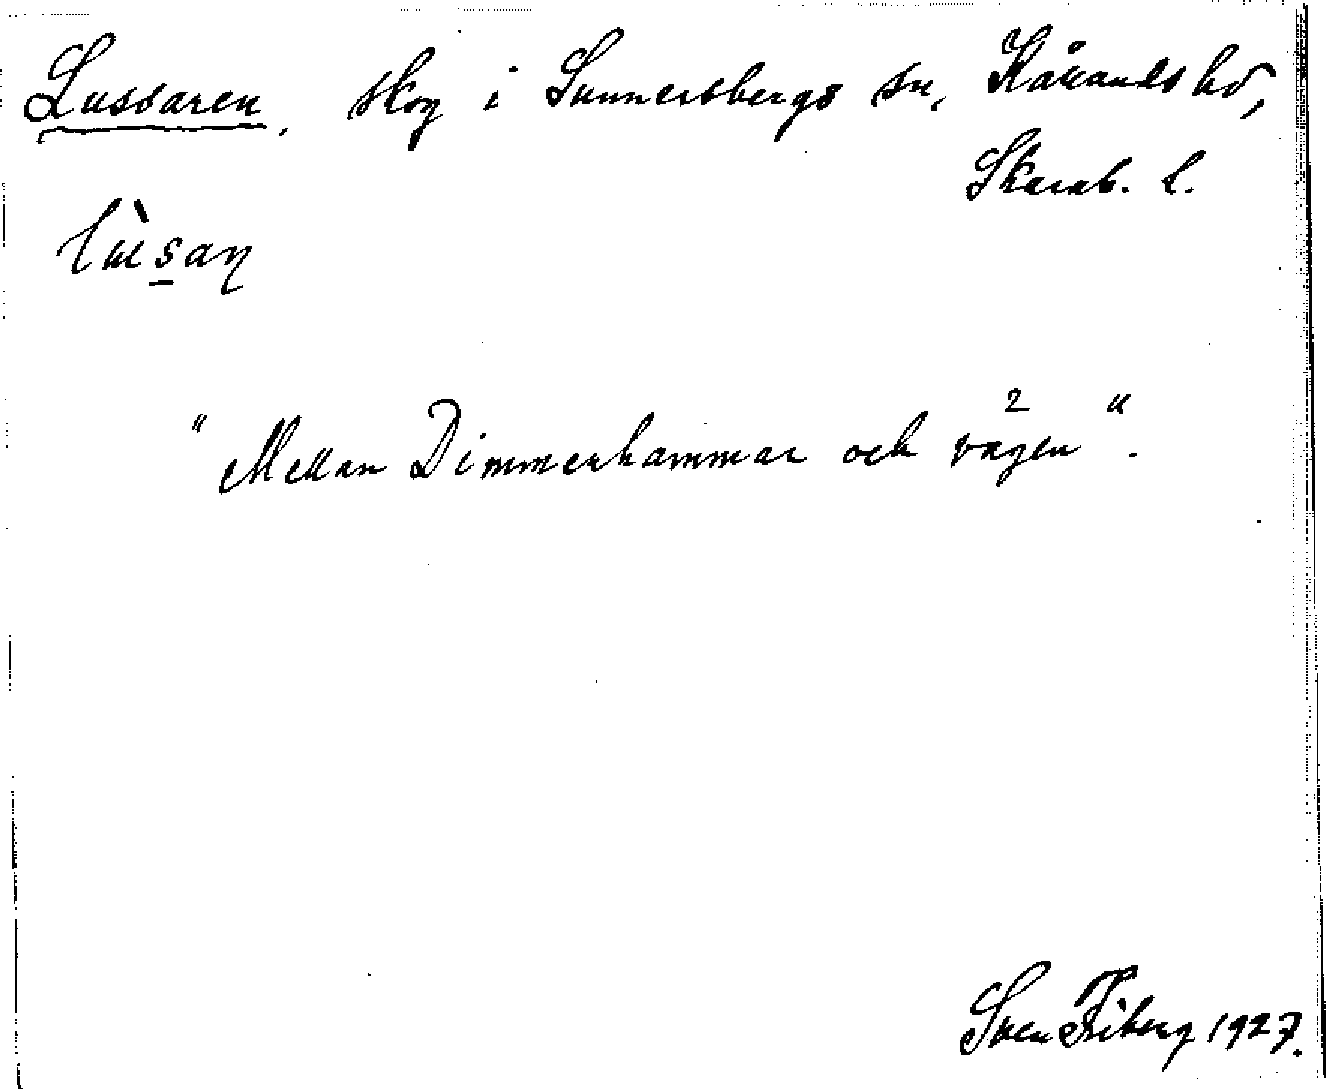 Lussaren, skog i Sunnersbergs sn, Kållands hd,
Skarab. l.
lùsan
"Mellan Dimmerhammar och vägen".
Sven Friberg 1927.